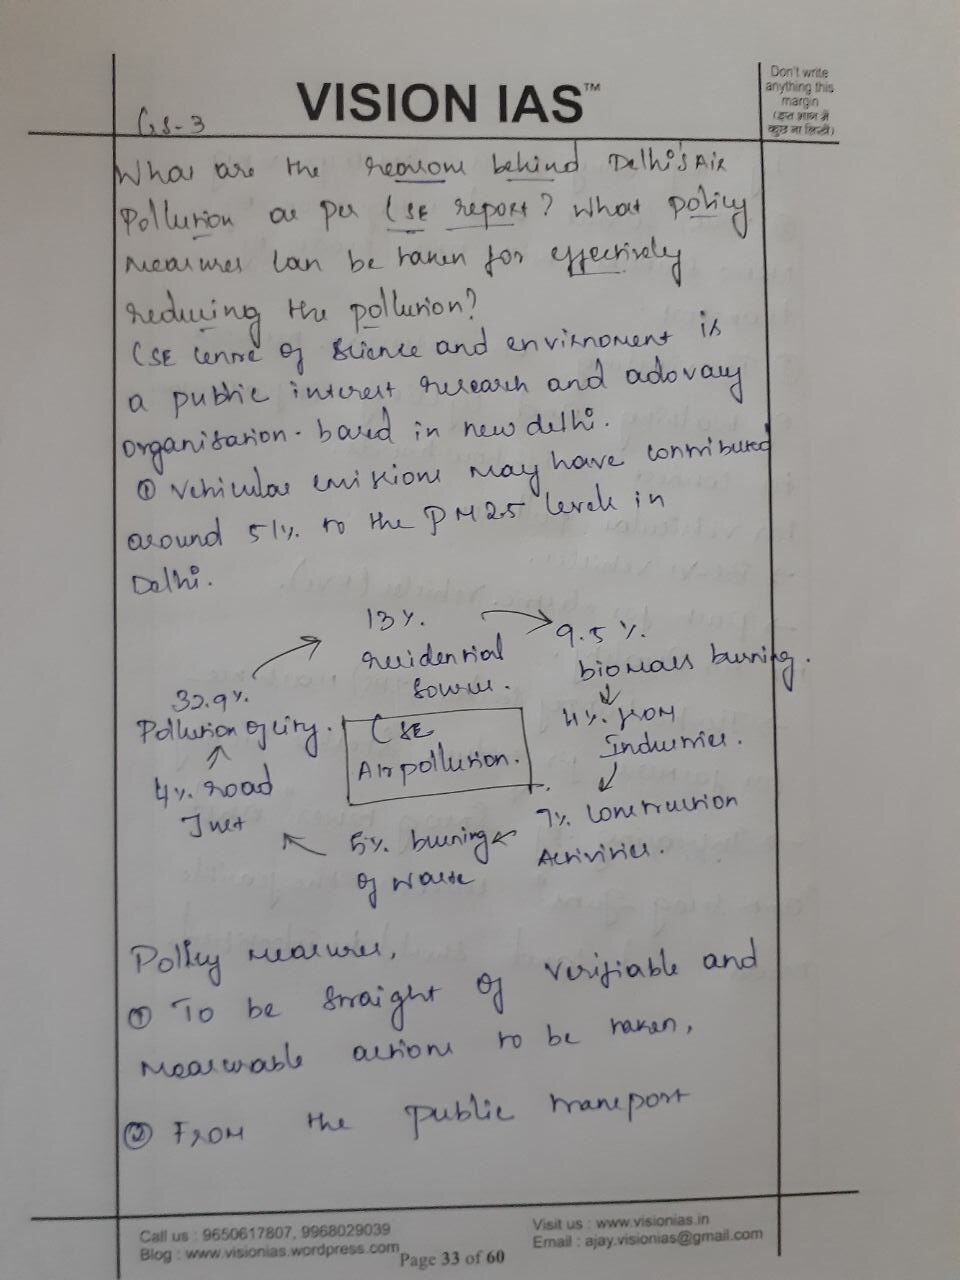 Don't write
anything this
margin
(इस भाग में
कुछ ना लिखें)
VISION IAS™
GS-3
What are the reasons behind Delhi's Air
Pollution as per CSE report? What policy
measures can be taken for effectively
reducing the pollution?
CSE Centre of Science and envirnoment is
a public interest research and adovacy
organisation. based in new delhi.
① Vehicular emissions may have contributed
around 51% to the PM2.5 levels in
Delhi.
13%.
residential
source.
9.5%.
biomass burning.
32.9%
Pollution of city.
CSE
Air pollution.
4%. from
Industries.
4%. road
Dust
5%. burning
of waste
7%. Construction
Activities.
Policy measures,
① To be straight of verifiable and
measurable actions to be taken,
② From the public transport
Call us : 9650617807, 9968029039
Blog : www.visionias.wordpress.com
Page 33 of 60
Visit us : www.visionias.in
Email : ajay.visionias@gmail.com